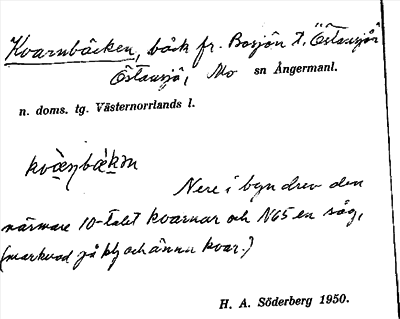 Kvarnbäcken, bäck fr. Bosjön t. Östansjön
Östansjö, Mo sn Ångermanl.
n. doms. tg. Västernorrlands l.
Nere i byn drev den
närmare 10-talet kvarnar och N65 en såg,
(markvad på kj och ännu kvar.)
H. A. Söderberg 1950.